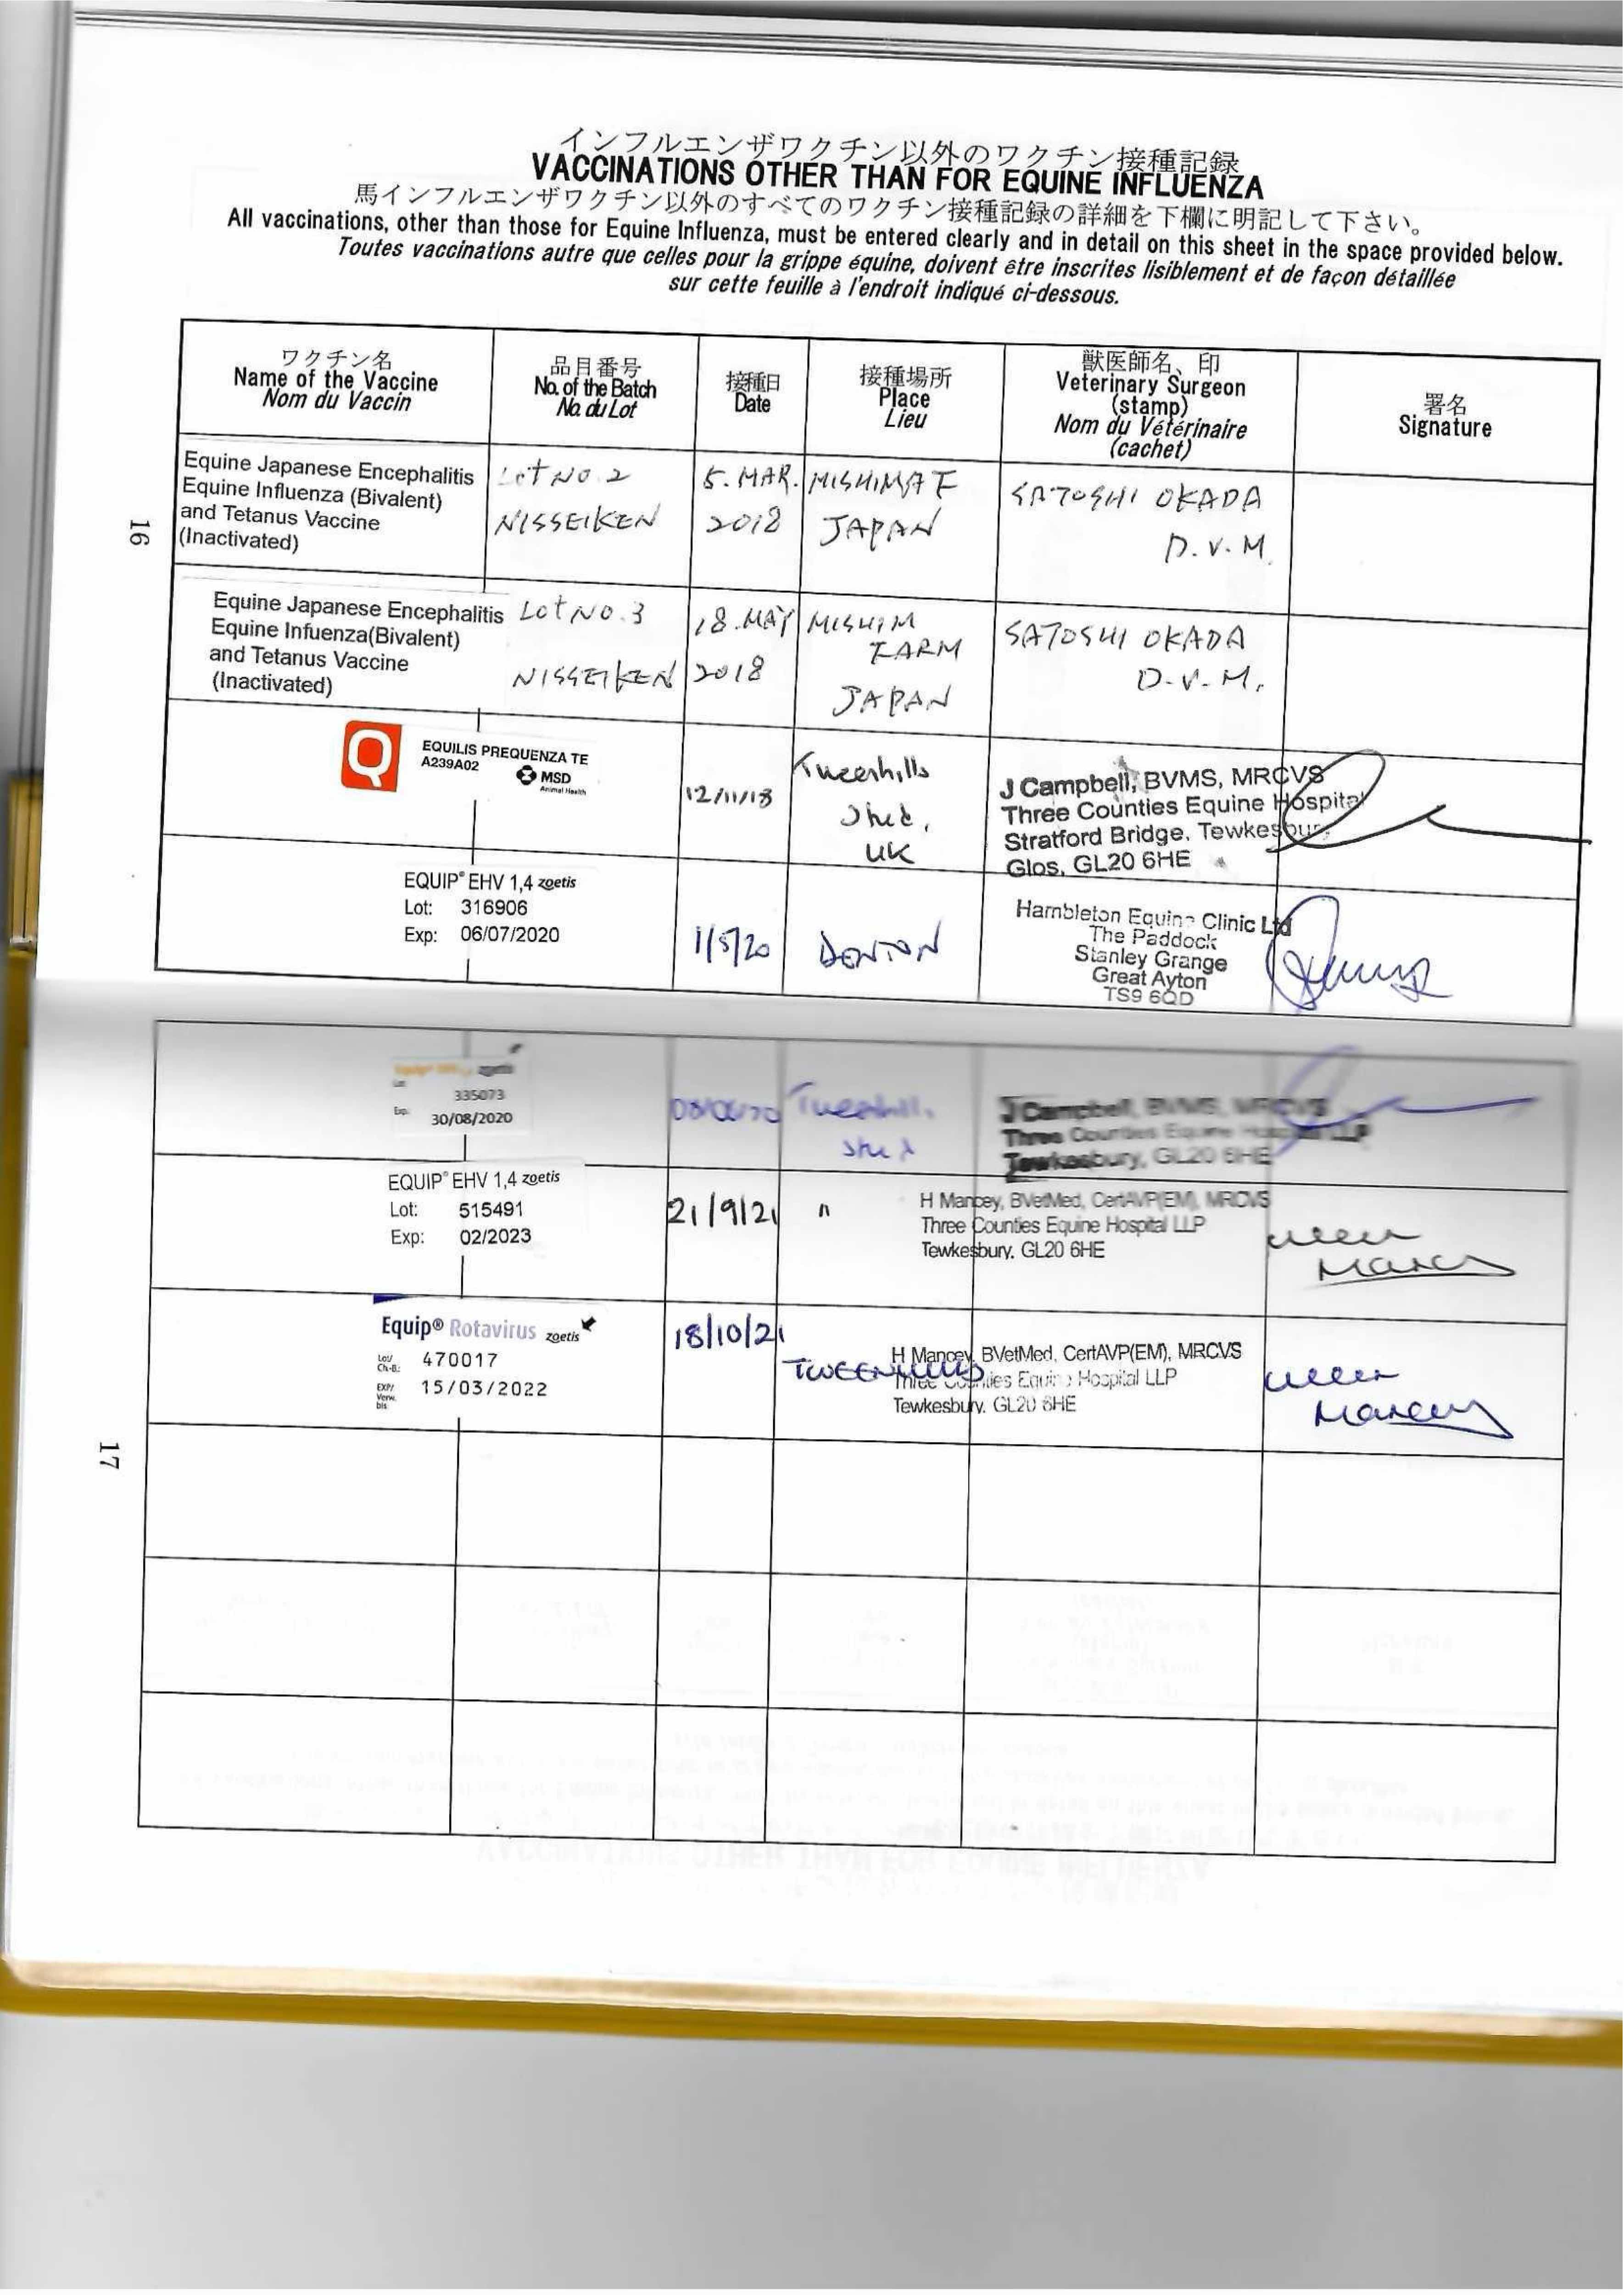 インフルエンザワクチン以外のワクチン接種記録
VACCINATIONS OTHER THAN FOR EQUINE INFLUENZA
馬インフルエンザワクチン以外のすべてのワクチン接種記録の詳細を下欄に明記して下さい。
All vaccinations, other than those for Equine Influenza, must be entered clearly and in detail on this sheet in the space provided below.
Toutes vaccinations autre que celles pour la grippe équine, doivent être inscrites lisiblement et de façon détaillée
sur cette feuille à l'endroit indiqué ci-dessous.
ワクチン名
Name of the Vaccine
Nom du Vaccin
品目番号
No. of the Batch
No. du Lot
接種日
Date
接種場所
Place
Lieu
獣医師名、印
Veterinary Surgeon
(stamp)
Nom du Vétérinaire
(cachet)
署名
Signature
Equine Japanese Encephalitis
Equine Influenza (Bivalent)
and Tetanus Vaccine
(Inactivated)
Lot No. 2
NISSEIKEN
5. MAR.
2018
MISHIMA F
JAPAN
SATOSHI OKADA
D.V.M.
16
Equine Japanese Encephalitis
Equine Infuenza(Bivalent)
and Tetanus Vaccine
(Inactivated)
Lot No. 3
NISSEIKEN
18. MAY
2018
MISHIM
FARM
JAPAN
SATOSHI OKADA
D.V.M.
Q
EQUILIS PREQUENZA TE
A239A02
MSD
Animal Health
12/11/18
Tweenhills
Stud,
UK
J Campbell, BVMS, MRCVS
Three Counties Equine Hospital
Stratford Bridge, Tewkesbury
Glos, GL20 6HE
EQUIP® EHV 1,4 zoetis
Lot: 316906
Exp: 06/07/2020
1/5/20
DENTON
Hambleton Equine Clinic Ltd
The Paddock
Stanley Grange
Great Ayton
TS9 6QD
Equip® zoetis
Lot
335073
Exp. 30/08/2020
Tweenhills
Stud
J Campbell, BVMS, MRCVS
Three Counties Equine Hospital LLP
Tewkesbury, GL20 6HE
EQUIP® EHV 1,4 zoetis
Lot: 515491
Exp: 02/2023
21/9/21
"
H Mancey, BVetMed, CertAVP(EM), MRCVS
Three Counties Equine Hospital LLP
Tewkesbury. GL20 6HE
Mancey
Equip® Rotavirus zoetis
Lot/
Ch-B.: 470017
EXP/
Verw.
bis 15/03/2022
18/10/21
TWEENHILLS
H Mancey, BVetMed, CertAVP(EM), MRCVS
Three Counties Equine Hospital LLP
Tewkesbury. GL20 6HE
Mancey
17